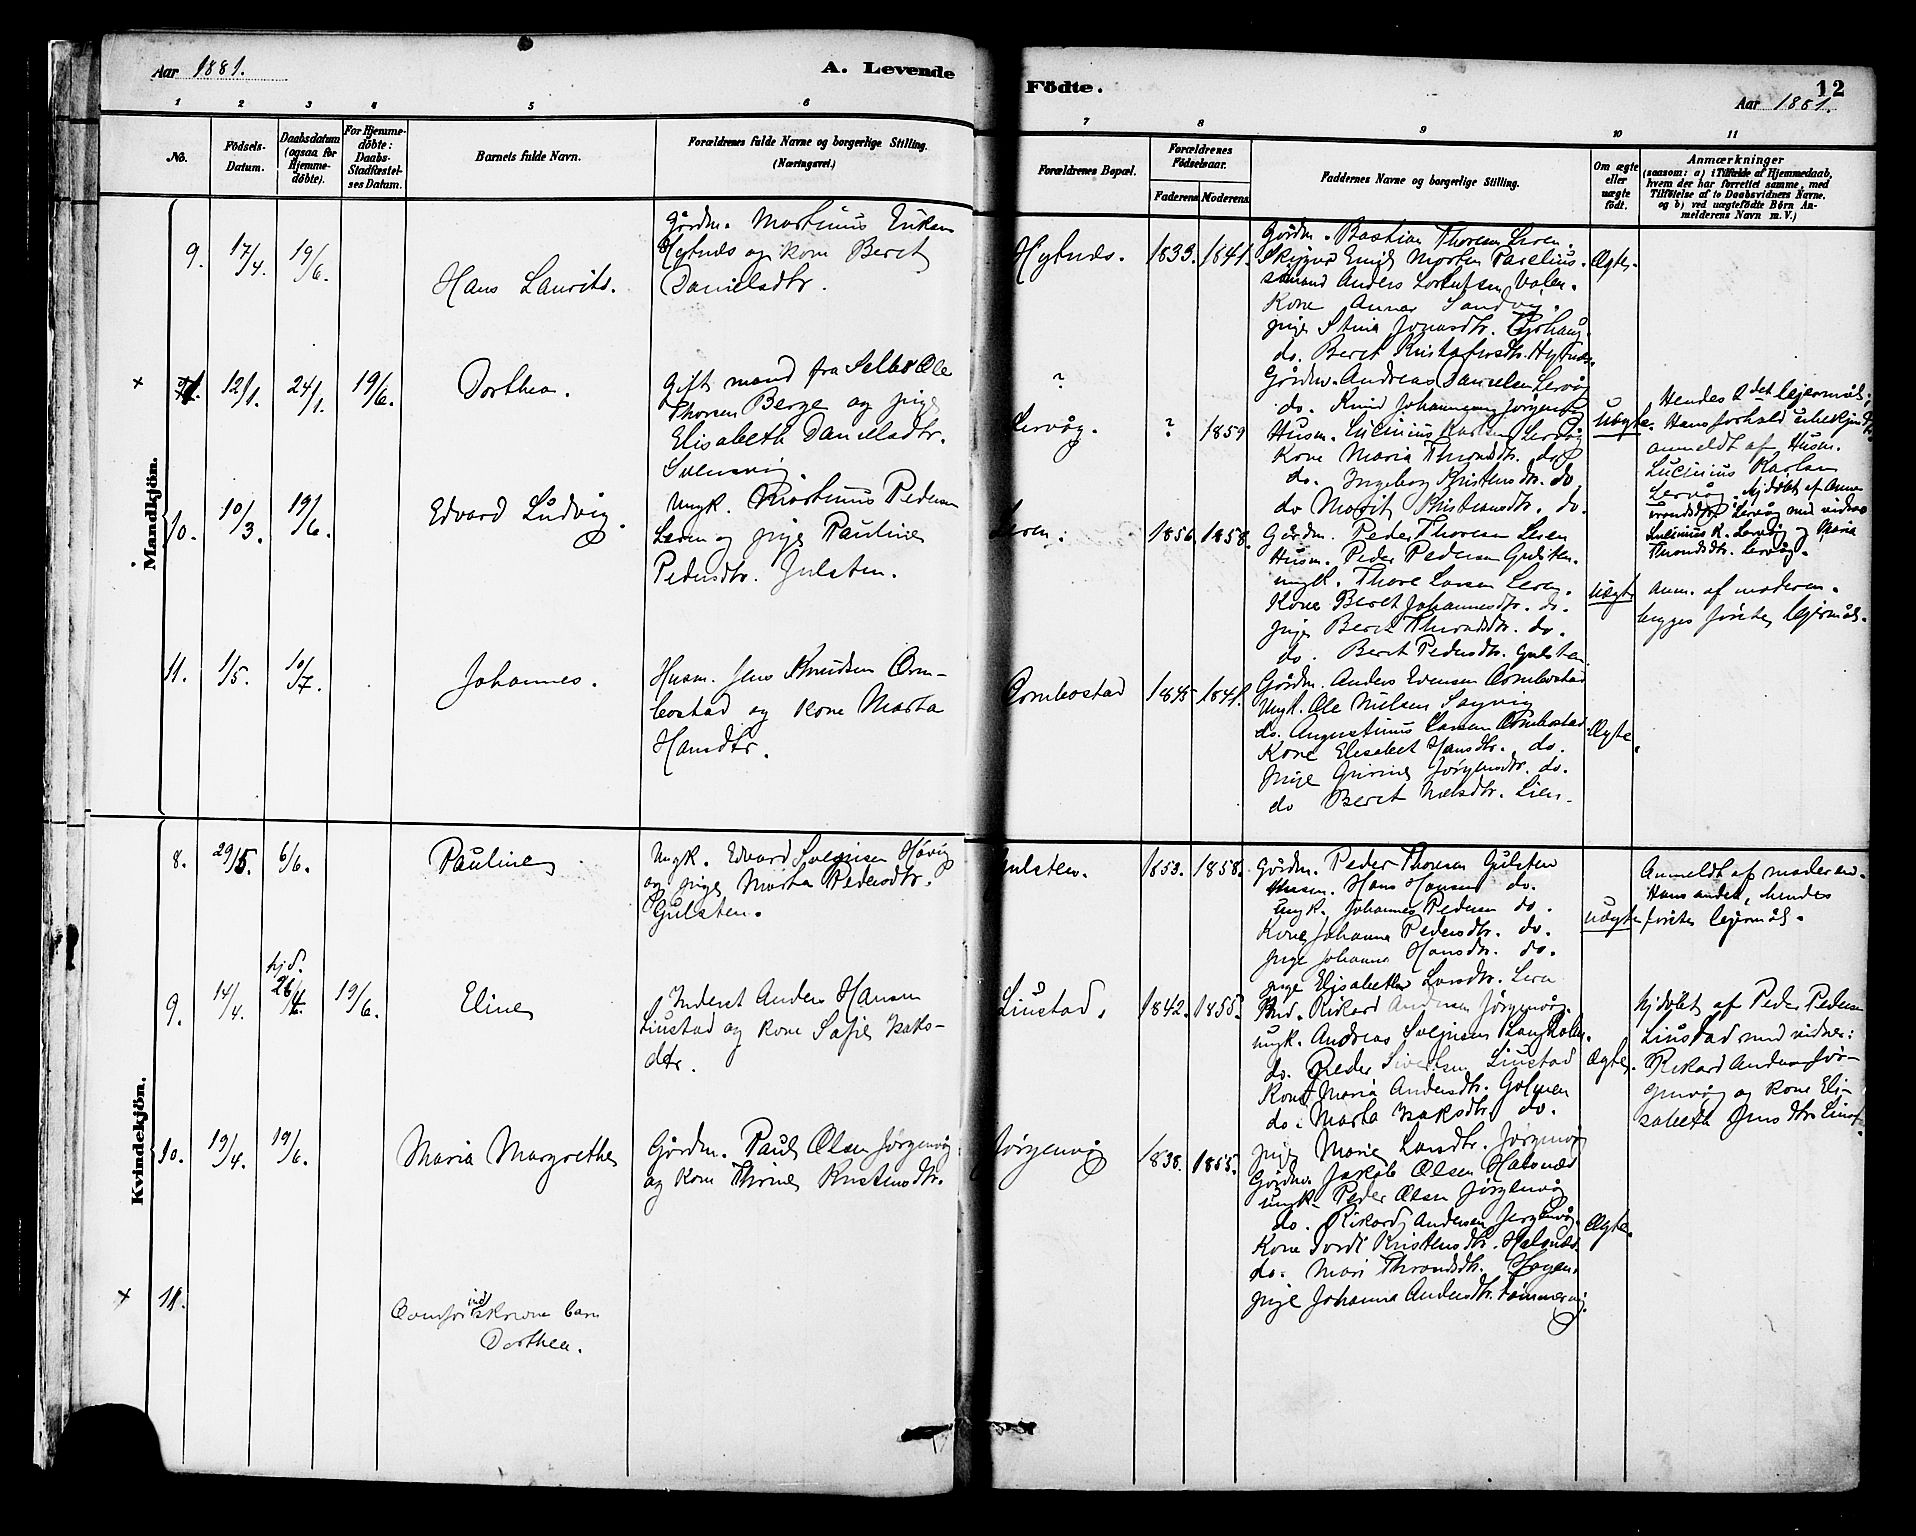 Aar 1881.
A. Levende
Födte.
12
Aar 1881.
1 2 3 4 5 6 7 8 9 10 11
No.
Födsels-
Datum.
Daabsdatum
(ogsaa for
Hjemme-
döbte).
For Hjemme-
döbte:
Daabs-
Stadfæstel-
ses Datum.
Barnets fulde Navn.
Forældrenes fulde Navne og borgerlige Stilling.
(Næringsvei.)
Forældrenes Bopæl.
Forældrenes
Födselsaar.
Faderens Moderens
Faddernes Navne og borgerlige Stilling.
Om ægte
eller
uægte
födt.
Anmærkninger
(saasom: a) i Tilfælde af Hjemmedaab,
hvem der har forrettet samme, med
Tilföielse af to Daabsvidners Navne.
og b) ved uægtefödte Börn An-
melderens Navn m. V.)
Mandkjön.
9. 17/4. 19/6.
Hans Laurits.
Gårdm. Martinus
Hytnæs og kone Beret
Danielsdtr.
Hytnæs. 1833. 1841.
Gårdm. Bastian Thoresen Leren.
Emil Morten
Anders Lorentsen Valen.
Kone Anna Sandvig.
pige Stina Jonasdtr.
do. Beret Kristofersdtr. Hytnæs.
Ægte.
12/1. 24/1. 19/6.
Dorthea.
Gift mand fra Selbo Ole
Thorsen Berge og pige
Elisabeth Danielsdtr.
?
Lervåg. ? 1859
Gårdm. Andreas Danielsen Lervåg
do. Knud Johannesen Jørgenvåg
Husm. Lucinius Karlsen Lervåg
Kone Maria Throndsdtr. do
do. Ingeborg Kristensdtr. do.
do Marit Kristiansdtr. do.
Uægte.
Hendes 2det lejermål;
Hans forhold ubekjendt
anmeldt af Husm.
Lucinius Karlsen
Lervåg. Hjdøbt af Anne
Lervåg med vidner
Lucinius K. Lervåg og Maria
Throndsdtr. Lervåg.
10. 10/3. 19/6.
Edvard Ludvig.
Ungk. Martinus Pedersen
Leren og pige Pauline
Pedersdtr. Gulsten.
Leren. 1856. 1858.
Gårdm. Peder Thoresen Leren
Husm. Peder Pedersen
ungk. Thore Larsen Leren.
Kone Beret Johannesdtr. do.
pige Beret Throndsdtr. do.
do. Beret Pedersdtr. Gulsten
Uægte
Anm. af moderen.
begges første lejermål.
11. 1/5. 10/7.
Johannes.
Husm. Jens Knudsen Orm-
bostad og kone Marta
Hansdtr.
Ormbostad 1845 1841.
Gårdm. Anders Evensen Ormbostad
Ungk. Ole Nielsen
do. Augustinus Larsen Ormbostad.
Kone Elisabet Hansdtr. do.
Pige Gurine Jørgensdtr. do.
do Beret Nielsdtr. Lien.
Ægte.
Kvindekjön.
8. 29/5. 6/6.
Pauline
Ungk. Edvard Svendsen Håvig
og pige Marta Pedersdtr.
Gulsten.
Gulsten. 1853. 1858.
Gårdm. Peder Thoresen Gulsten
Husm. Hans Hansen do.
Ungk. Johannes Pedersen do.
Kone Johanna Pedersdtr. do.
pige Johanna Hansdtr. do.
pige Elisabeth Larsdtr. Leren
uægte
Anmeldt af moderen.
Hans andet, hendes
første lejermål.
9. 14/4. hjd. 26/4. 19/6.
Eline
Inderst Anders Hansen
Liustad og kone Sofie Isaks-
dtr.
Liustad. 1842. 1855.
Ind. Rikard Andersen Jørgenvåg.
ungk. Andreas Svendsen Langholen.
do. Peder Sivertsen Liustad
Kone Maria Andersdtr.
do. Marta Isaksdtr. do.
pige Marie Larsdtr. Jørgenvåg
Ægte.
hjdøbt af Peder Pedersen
Liustad med vidner:
Rikard Andersen Jør-
genvåg og kone Eli-
sabeth Jensdtr. Liustad.
10. 19/4. 19/6.
Maria Margrethe
Gårdm. Paul Olsen Jørgenvåg
og kone Thrine Kristensdtr.
Jørgenvåg 1838. 1855.
Gårdm. Jakob Olsen Halsnæs
ungk. Peder Olsen Jørgenvåg
do. Rikard Andersen Jørgenvåg.
Kone Kristensdtr. Halsnæs.
do. Mari Throndsdtr.
pige Johanna Andersdtr. Tømmervig.
Ægte.
11.
Ovenfor indskrevne barn
Dorthea.